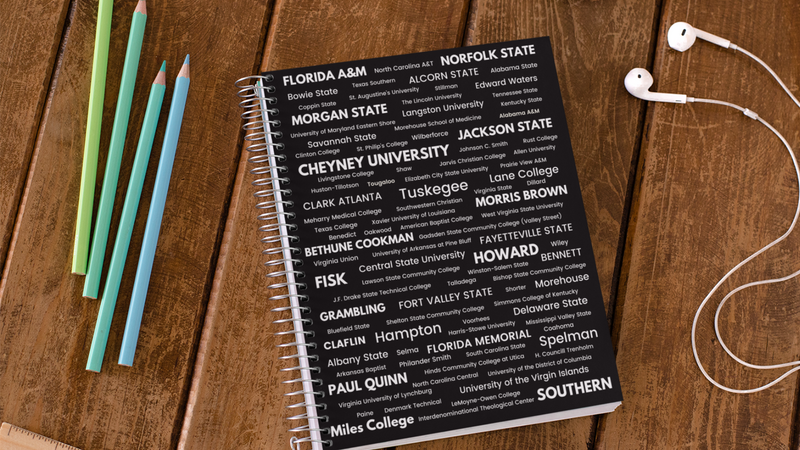 FLORIDA A&M North Carolina A&T NORFOLK STATE
Bowie State Texas Southern ALCORN STATE Alabama State
Coppin State St. Augustine's University Stillman Edward Waters
MORGAN STATE The Lincoln University Tennessee State
University of Maryland Eastern Shore Langston University Kentucky State
Savannah State Morehouse School of Medicine Alabama A&M
Clinton College St. Philip's College Wilberforce JACKSON STATE
CHEYNEY UNIVERSITY Johnson C. Smith Rust College
Livingstone College Shaw Jarvis Christian College Allen University
Huston-Tillotson Tougaloo Elizabeth City State University Prairie View A&M
CLARK ATLANTA Tuskegee Lane College
Meharry Medical College Southwestern Christian Virginia State Dillard
Texas College Xavier University of Louisiana MORRIS BROWN
Benedict Oakwood American Baptist College West Virginia State University
BETHUNE COOKMAN Gadsden State Community College (Valley Street)
Virginia Union University of Arkansas at Pine Bluff FAYETTEVILLE STATE
FISK Central State University HOWARD Wiley
Lawson State Community College BENNETT
J.F. Drake State Technical College Talladega Winston-Salem State Bishop State Community College
GRAMBLING FORT VALLEY STATE Shorter Morehouse
Bluefield State Shelton State Community College Simmons College of Kentucky
CLAFLIN Hampton Voorhees Delaware State
Harris-Stowe University Mississippi Valley State
Albany State Selma FLORIDA MEMORIAL Coahoma
Arkansas Baptist Philander Smith South Carolina State Spelman
PAUL QUINN Hinds Community College at Utica H. Councill Trenholm
North Carolina Central University of the District of Columbia
Virginia University of Lynchburg University of the Virgin Islands
Paine Denmark Technical LeMoyne-Owen College SOUTHERN
Miles College Interdenominational Theological Center